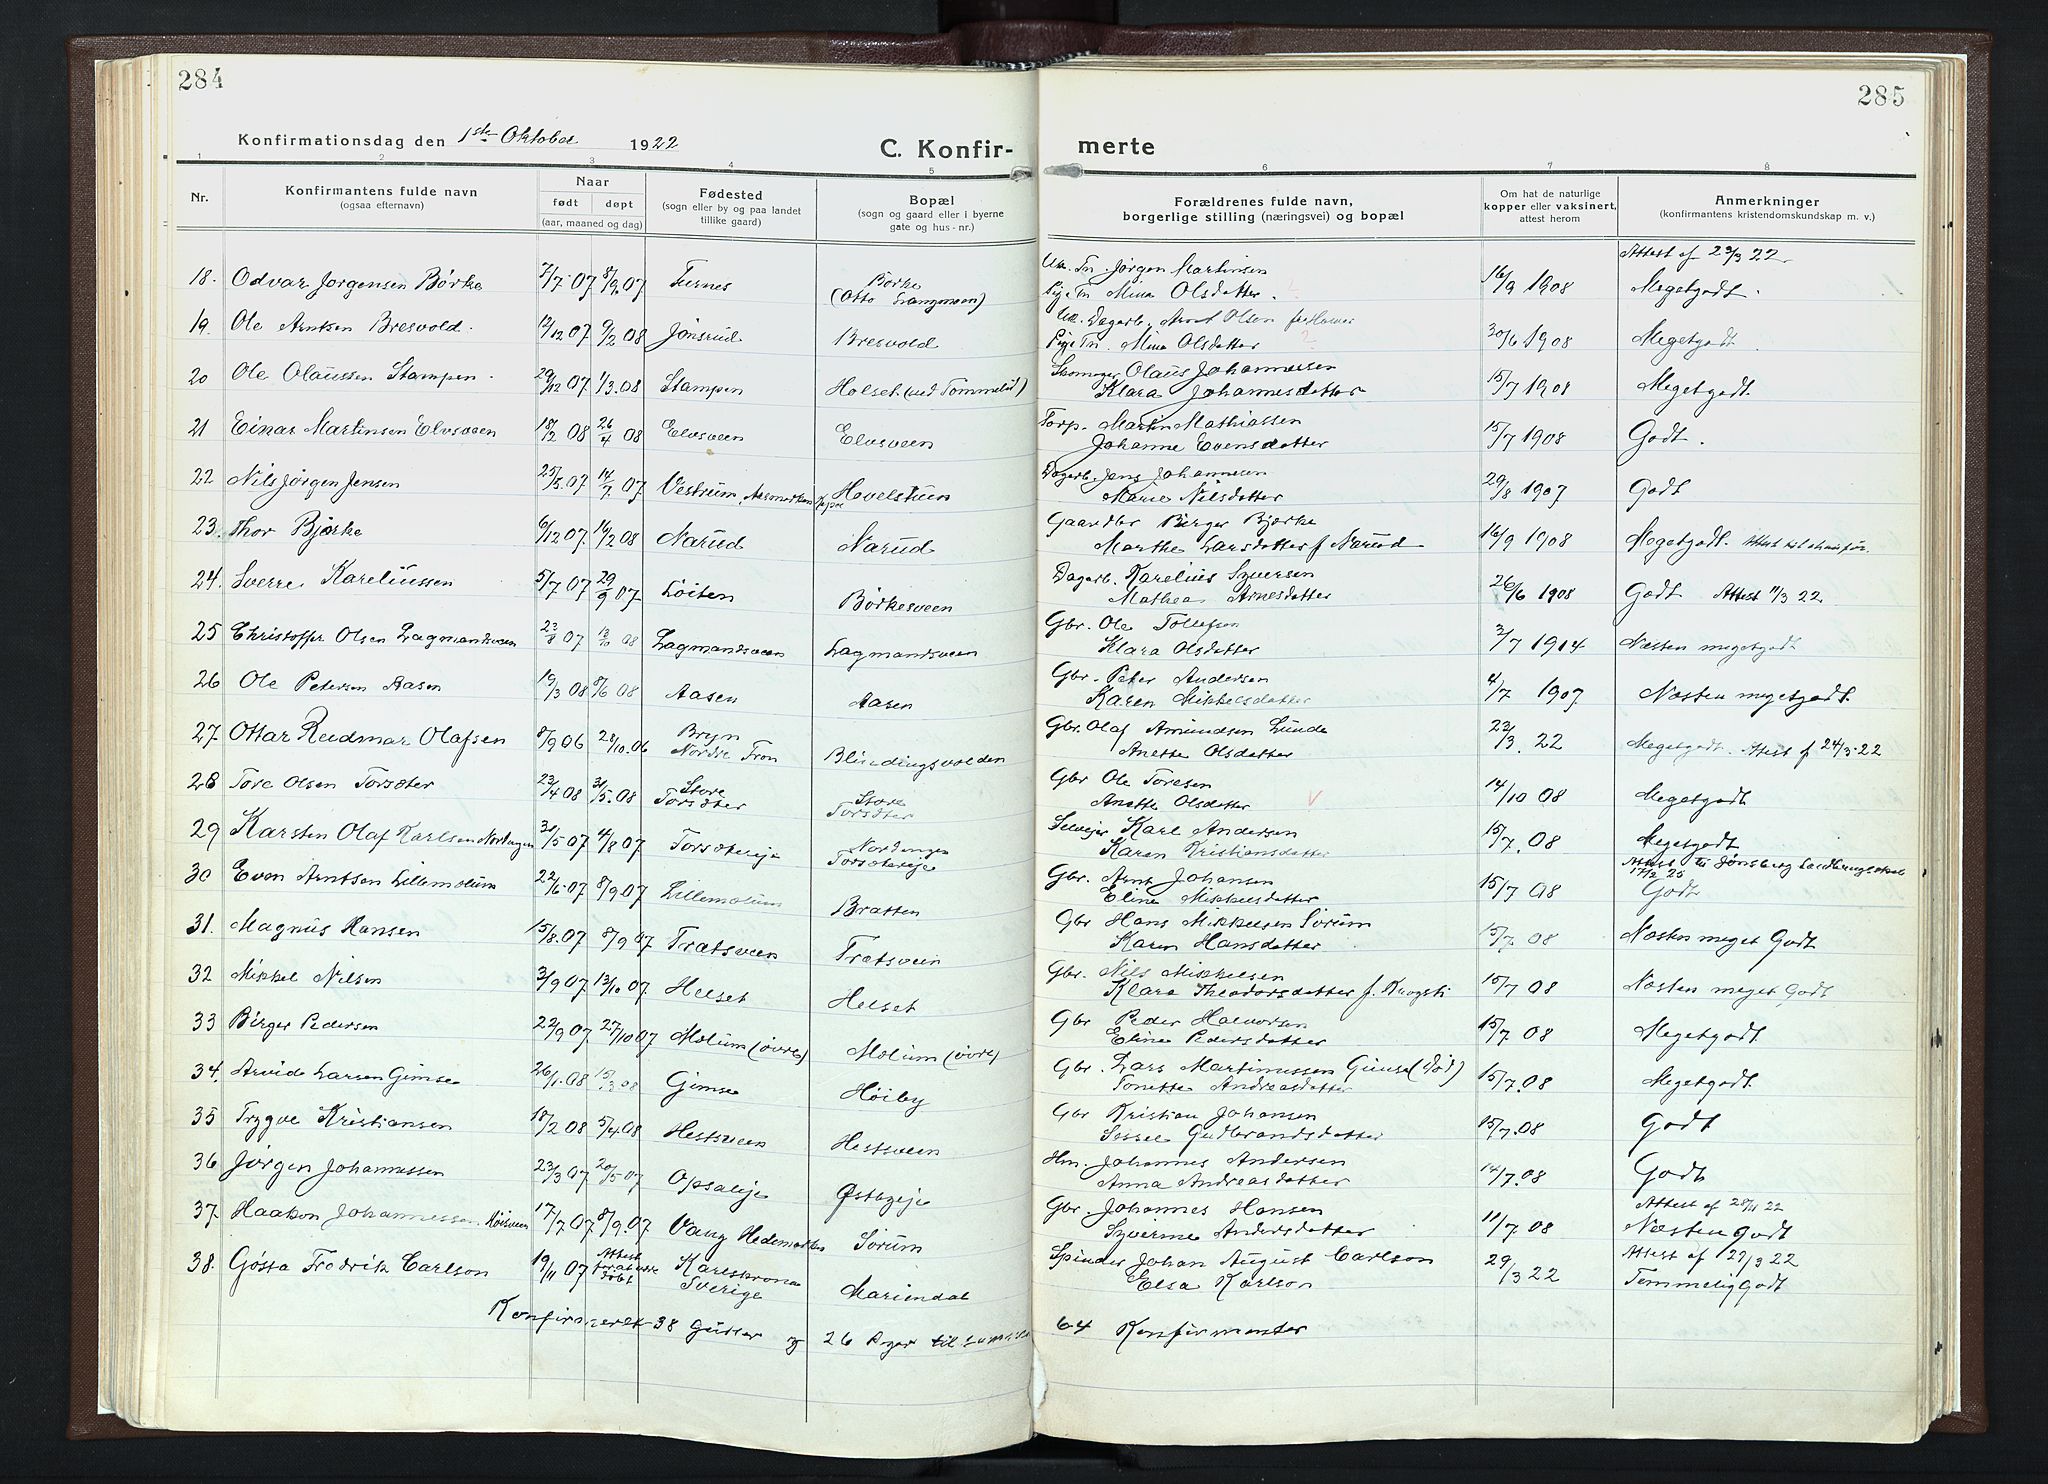 284
285
Konfirmationsdag den 1ste Oktober 1922
C. Konfir-
merte
1 2 3 4 5 6 7 8
Nr.
Konfirmantens fulde navn
(ogsaa efternavn)
Naar
født døpt
(aar, maaned og dag)
Fødested
(sogn eller by og paa landet
tillike gaard)
Bopæl
(sogn og gaard eller i byerne
gate og hus-nr.)
Forældrenes fulde navn,
borgerlige stilling (næringsvei) og bopæl
Om hat de naturlige
kopper eller vaksinert,
attest herom
Anmerkninger
(konfirmantens kristendomskundskap m. v.)
Attest af 29/3 22
18. Odvar Jørgensen Børke 7/7-07 8/9.07 Furnes Børke
(Otto Langmoen)
Uk. Tn. Jørgen Martinsen
Pige Tn Mina Olsdatter 16/9 1908 Megetgodt.
19. Ole Arntsen Bresvold. 12/12 07 9/2 08 Jønsrud Bresvold
Uk. Dagarb. Arnt Olsen
Pige Tn. Mina Olsdatter 30/6 1908 Megetgodt.
20 Ole Olaussen Stampen 29/12 07 1/3.08 Stampen Holset (ved Tommelst)
Skomager Olaus Johannessen
Klara Johannesdatter 15/7 1908 Megetgodt
21 Einar Martinsen Elvsveen 18/2 08 26/4 08 Elvsveen Elvsveen
Torp. Martin Mathiassen
Johanne Evensdatter 15/7 1908 Godt.
22 Nils Jørgen Jensen 25/5.07 14/7.07 Vestrum, Aasmarken Hovelstuen
Dagarb. Jens Johannesen
Marie Nilsdatter 29/8 1907 Godt
23. Thor Bjørke 6/12 07 16/2 08 Narud Narud
Gaardbr Birger Bjørke
Marthe Larsdatter f Narud 16/9 1908 Megetgodt.
24. Sverre Kareliussen 5/7 07 29/9 07 Løiten Børkesveen
Dagarb. Karelius Syversen
Mathea Arnesdatter 26/6 1908 Godt Attest 11/3 22
25 Christoffer Olsen Lagmandsveen 23/8 07 08 Lagmandsveen Lagmandsveen
Gbr. Ole Tollefsen
Klara Olsdatter 3/7 1914 Næsten megetgodt
26 Ole Petersen Aasen 19/3 08 8/6 08 Aasen Aasen
Gbr. Peter Andersen
Karen Mikkelsdatter 4/7 1907 Næsten megetgodt.
27 Ottar Reidmar Olafsen 8/9 06 28/10.06 Bryn
Nordre Fron Blindingsvolden
Gbr. Olaf Amundsen Lunde
Anette Olsdatter 22/3. 22 Megetgodt. Attest f 24/3-22
28 Tore Olsen Torsæter 23/4 08 31/5.08 Store
Torsæter Store
Torsæter
Gbr Ole Toresen
Anette Olsdatter 14/10 08 Megetgodt
29 Karsten Olaf Karlsen Nordengen 30/5 07 4/8 07 Torsætereje Nordengen
Torsætereje
Selvejer Karl Andersen
Karen Kristiansdatter 15/7.08 Megetgodt
Attest til Jønsberg Landbrugsskole
17/2 25
30 Even Arntsen Lillemolum 22/6-07 8/9.07 Lillemolum Bratten
Gbr. Arnt Johansen
Eline Mikkelsdatter 15/7 08 Godt
31. Magnus Hansen 15/8.07 8/9 07 Trætsveen Trætsveen
Gbr Hans Mikkelsen Sørum
Karen Hansdatter 15/7 08 Næsten meget Godt
32 Mikkel Nilsen 3/9 07 13/10 07 Helset Helset
Gbr. Nils Mikkelsen
Klara Theodorsdatter f. 15/7 08 Næsten meget Godt
33 Birger Pedersen 22/9 07 27/10 07 Molum (øvre) Molum (øvre)
Gbr Peder Halvorsen
Eline Pedersdatter 15/7. 08 Megetgodt
34. Arvide Larsen Gimse 26/1.08 15/3 08 Gimse Høiby
Gbr. Lars Martinussen Gimse (død)
Tonette Andreasdatter 15/7.08 Megetgodt
35 Trygve Kristiansen 18/2 08 5/4.08 Hestsveen Hestsveen
Gbr Kristian Johansen
Sessel Gudbrandsdatter 15/7.08 Godt
36 Jørgen Johannessen 23/3 07 20/5 07 Opsaleje Østageje
Hm. Johannes Andersen
Anna Andreasdatter 14/7.08 Godt
37. Haakon Johannessen 17/7 07 8/9.07 Vang Hedemarken Sørum
Gbr. Johannes Hansen
Syverine Andersdatter 11/7.08 Attest af 28/11 22
Næsten Godt
38. Gøsta Fredrik Carlson 19/11 07 Karlskrona
Sverige Mariendal
Spinder Johan August Carlson
Elsa Karlson 29/3 22 Attest af 27/3 22
Temmelig Godt
Konfirmerte 38 Gutter og 26 Piger til sammen 64 Konfirmanter